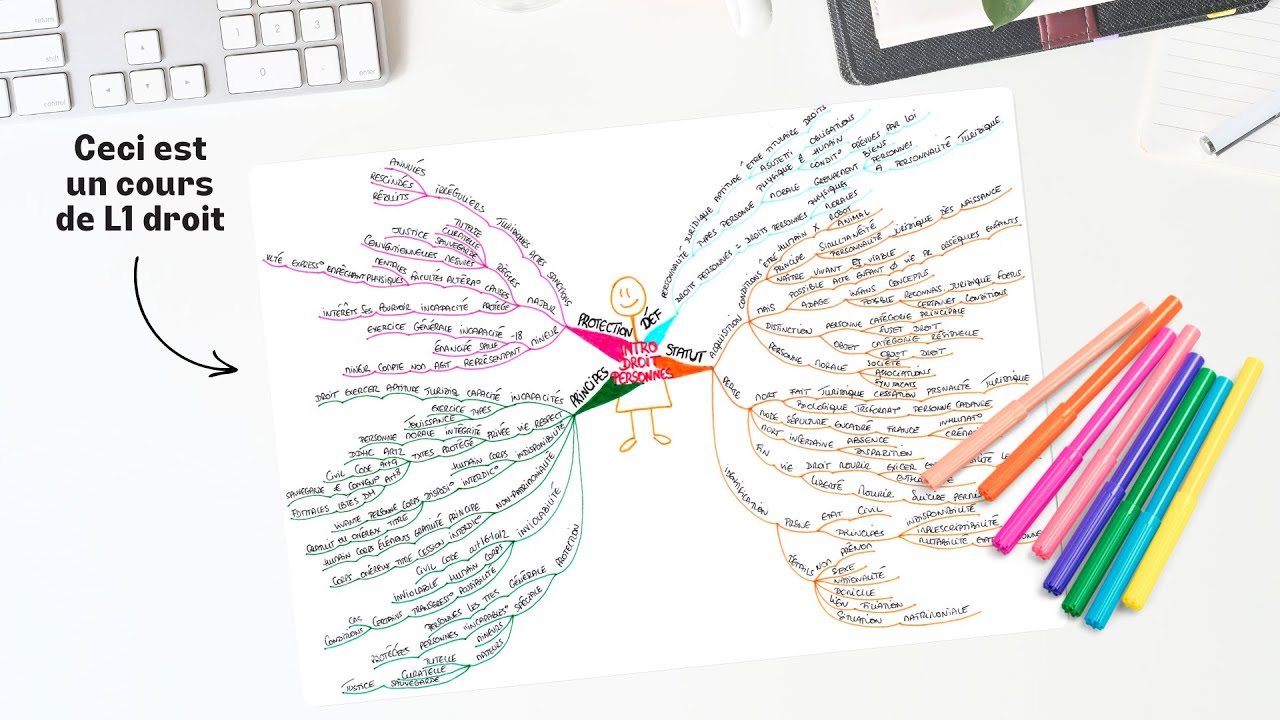 return
shift
control
1
2
3
0
enter
Ceci est
un cours
de L1 droit
INTRO
DROIT
PERSONNES
DÉF
PERSONNALITÉ JURIDIQUE APTITUDE ÊTRE TITULAIRE DROITS
ASSUJETTI OBLIGATIONS
TYPES PERSONNE PHYSIQUE HUMAIN
CONDIT° PRÉVUES PAR LOI
MORALE GROUPEMENT BIENS
PERSONNES
A PERSONNALITÉ JURIDIQUE
DROIT PERSONNES = DROITS PERSONNES PHYSIQUES
MORALES
STATUT
ACQUISITION CONDITIONS ÊTRE HUMAIN X ROBOT
ANIMAL
PRINCIPE SIMULTANÉITÉ
PERSONNALITÉ JURIDIQUE DES NAISSANCE
NAÎTRE VIVANT ET VIABLE
MAIS POSSIBLE ACTE ENFANT Ø VIE PR OBSÈQUES ENFANTS
ADAGE INFANS CONCEPTUS
POSSIBLE RECONNAS. JURIDIQUE FOETUS
CERTAINES CONDITIONS
DISTINCTION PERSONNE CATÉGORIE PRINCIPALE
SUJET DROIT
OBJET CATÉGORIE RÉSIDUELLE
OBJET DROIT
PERSONNE MORALE SOCIÉTÉ
ASSOCIATIONS
SYNDICATS
PERTE
MORT FAIT JURIDIQUE CESSATION JURIDIQUE
BIOLOGIQUE TRSFORMAT° PERSONNE CADAVRE
MODE SÉPULTURE ENCADRÉ FRANCE INHUMAT°
MORT INCERTAINE ABSENCE
DISPARITION
FIN VIE DROIT MOURIR
LIBERTÉ MOURIR SUICIDE
IDENTIFICATION
ETAT CIVIL
PRINCIPES INDISPONIBILITÉ
IMPRESCRIPTIBILITÉ
MUTABILITÉ
DÉTAILS NOM PRÉNOM
SEXE
NATIONALITÉ
DOMICILE
LIEN FILIATION
SITUATION MATRIMONIALE
PROTECTION
JURIDIQUES ACTES SANCTIONS
IRRÉGULIERS
ANNULÉS
RESCINDÉS
RÉDUITS
MAJEUR
RÉGIMES
TUTELLE
CURATELLE
JUSTICE SAUVEGARDE
CONVENTIONNELLES MESURES
CAUSES ALTÉRAT° FACULTÉS
MENTALES
PHYSIQUES EMPÊCHANT EXPRESS°
INTÉRÊTS SES POURVOIR INCAPACITÉ PROTÉGÉ
MINEUR
-18
EXERCICE GÉNÉRALE INCAPACITÉ
ÉMANCIPÉ SAUF
REPRÉSENTANT
AGIT
MINEUR COMPTE NOM AGIT REPRÉSENTANT
PRINCIPES
DROIT EXERCER APTITUDE JURIDIQ CAPACITÉ INCAPACITÉS
EXERCICE TYPES
JOUISSANCE
PERSONNE MORALE INTÉGRITÉ PRIVÉE VIE RESPECT
DDHC ART2 TXTES PROTÉGÉ
CIVIL CODE ART9
HUMAIN CORPS INDISPONIBILITÉ
NON-PATRIMONIALITÉ
HUMAIN CORPS ÉLÉMENTS GRATUITÉ PRINCIPE
CORPS ONÉREUX TITRE CESSION INTERDIC°
INVIOLABILITÉ
CIVIL CODE
INVIOLABLE HUMAIN CORPS
CAS CERTAINS TRANSGRESS° POSSIBILITÉ
CONDITIONS
PROTECTION
GÉNÉRALE
PERSONNES LES TTES
SPÉCIALE
PROTÉGÉES PERSONNES "INCAPABLES"
MINEURS
MAJEURS
TUTELLE
CURATELLE
JUSTICE SAUVEGARDE